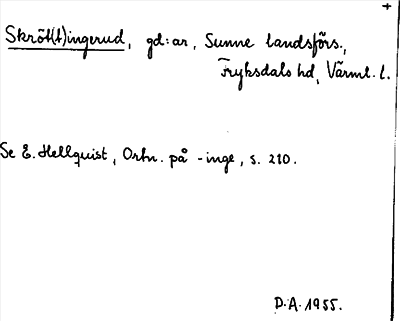 +
Skröt(t)ingerud, gd:ar, Sunne landsförs.,
Fryksdals hd, Värml. l.
Se E. Hellquist, Ortn. på -inge, s. 210.
D.A. 1955.